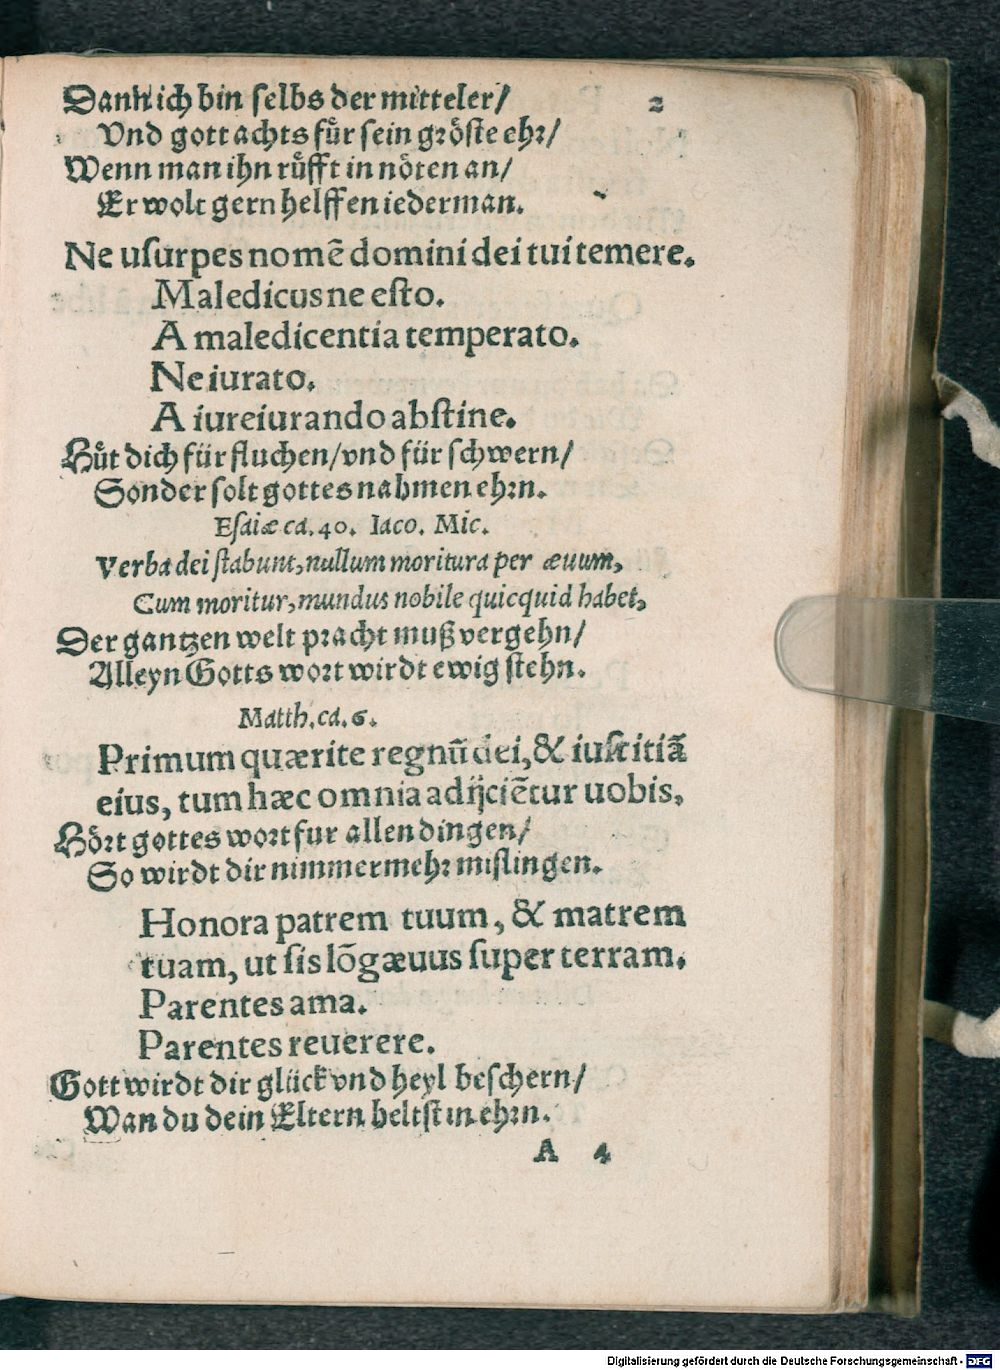 Dann ich bin selbs der mitteler/ 2
Vnd gott achts fuͤr sein groͤste ehr/
Wenn man ihn ruͤfft in noͤten an/
Er wolt gern helffen iederman.
Ne usurpes nomē domini dei tui temere.
Maledicus ne esto.
A maledicentia temperato.
Ne iurato.
A iureiurando abstine.
Huͤt dich für fluchen/vnd für schwern/
Sonder solt gottes nahmen ehrn.
Esaiæ ca. 40. Iaco. Mic.
Verba dei stabunt, nullum moritura per æuum,
Cum moritur, mundus nobile quicquid habet,
Der gantzen welt pracht muß vergehn/
Alleyn Gotts wort wirdt ewig stehn.
Matth. ca. 6.
Primum quærite regnū dei, & iustitiā
eius, tum hæc omnia adijciētur uobis.
Hoͤrt gottes wort fur allen dingen/
So wirdt dir nimmermehr mislingen.
Honora patrem tuum, & matrem
tuam, ut sis lōgæuus super terram.
Parentes ama.
Parentes reuerere.
Gott wirdt dir glück vnd heyl beschern/
Wan du dein Eltern heltst in ehrn.
A 4
Digitalisierung gefördert durch die Deutsche Forschungsgemeinschaft - DFG